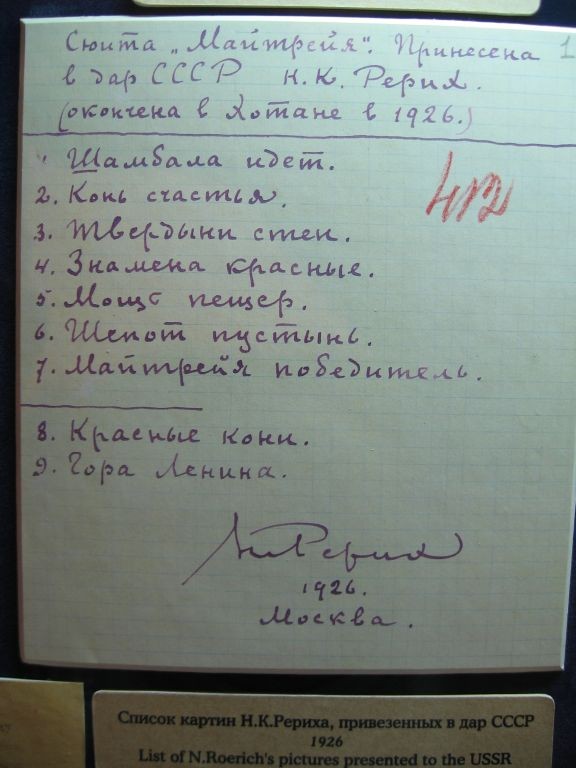 Сюита „Майтрейя". Принесена 1
в дар СССР Н.К. Рерих.
(окончена в Хотане в 1926.)
1. Шамбала идет.
2. Конь счастья.
3. Твердыни стен.
4. Знамена красные.
5. Мощь пещер.
6. Шепот пустынь.
7. Майтрейя победитель.
8. Красные кони.
9. Гора Ленина.
Н Рерих
1926.
Москва.
Список картин Н.К.Рериха, привезенных в дар СССР
1926
List of N.Roerich's pictures presented to the USSR